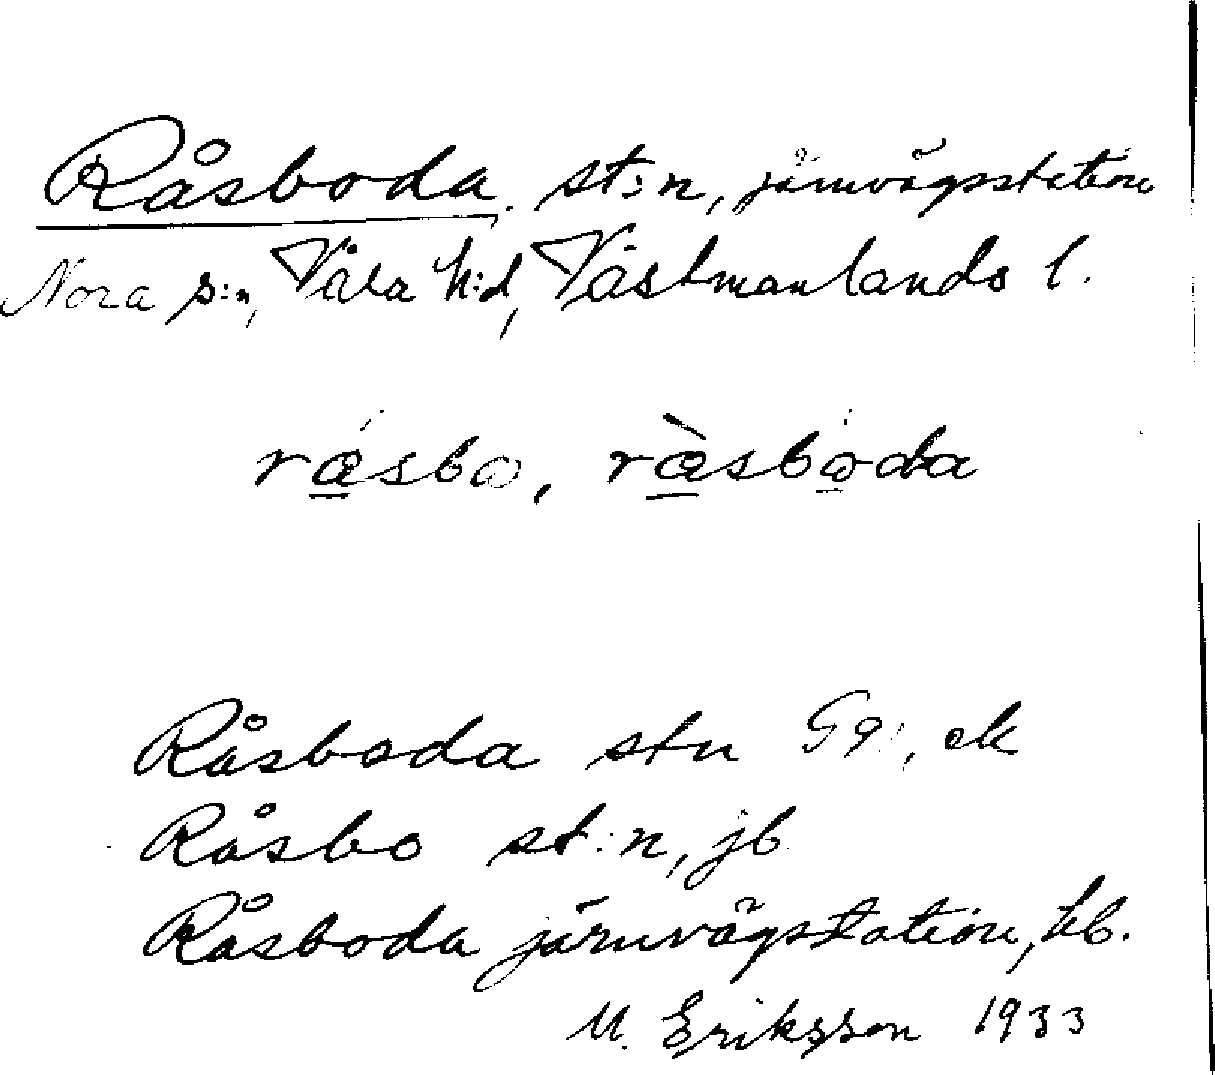 Råsboda. st:n, järnvägsstation
Nora s:n, Våla h:d, Västmanlands l.
råsbo, rₐ̀sboda
Råsboda stn Ga, ek
Råsbo st:n, jb
Råsboda järnvägstation, hb.
M. Eriksson 1933